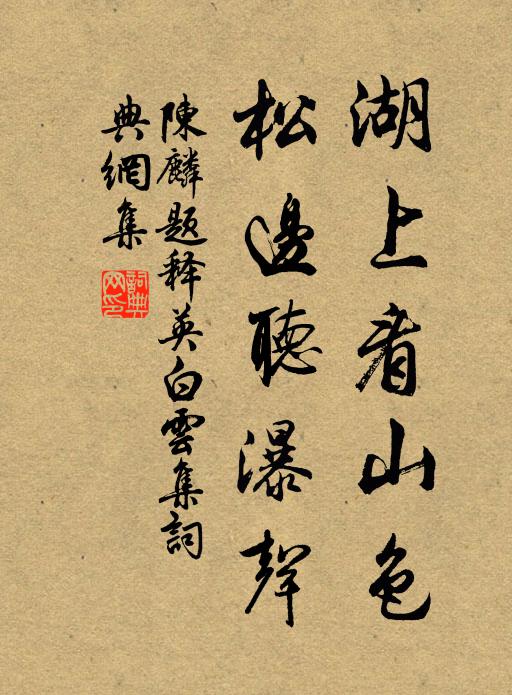 湖上看山色
松邊聽瀑聲
陳麟題释英白雲集詞
典網集
詞典
网印